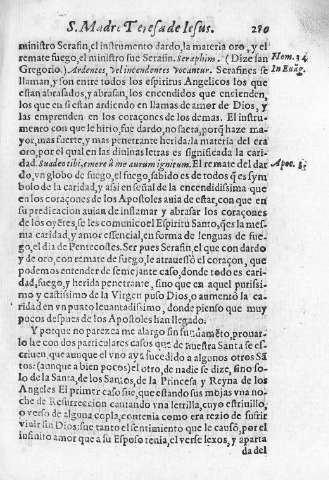 S. Madre Teresa de Iesus. 280
ministro Serafin, el instrumento dardo, la materia oro, y el
remate fuego, el ministro fue Serafin. Seraphim. (Dize san Hom. 34.
Gregorio.) Ardentes, vel incendentes vocantur. Serafines se In Euãg.
llaman, y son entre todos los espiritus Angelicos los que
estan abrasados, y abrasan, los encendidos que encienden,
los que en si estan ardiendo en llamas de amor de Dios, y
las emprenden en los coraçones de los demas. El instru-
mento con que le hirio, fue dardo, no saeta, porq̃ haze ma-
yor, mas fuerte, y mas penetrante herida: la materia del era
oro, por el qual en las diuinas letras es significada la cari-
dad. Suadeo tibi, emere à me aurum ignitum. El remate del dar- Apoc. 3.
do, vn globo de fuego, el fuego, sabido es de todos q̃ es sym
bolo de la caridad, y asi en señal de la encendidissima que
en los coraçones de los Apostoles auia de estar, con que en
su predicacion auian de inflamar y abrasar los coraçones
de los oyẽtes, se les comunicò el Espiritu Santo, q̃ es la mes-
ma caridad, y amor essencial, en forma de lenguas de fue-
go, el dia de Pentecostes. Ser pues Serafin, el que con dardo
y de oro, con remate de fuego, le atrauessò el coraçon, que
podemos entender de semejante caso, donde todo es cari-
dad, fuego, y herida penetrante, sino que en aquel purissi-
mo y castissimo de la Virgen puso Dios, o aumentò la ca-
ridad en vn punto leuantadissimo, donde pienso que muy
pocos despues de los Apostoles han llegado.
Y porque no parezca me alargo sin fundamẽto, prouar-
lo he con dos particulares casos que de nuestra Santa se es-
criuen que aunque el vno aya sucedido a algunos otros Sã
tos: (aunque a bien pocos) el otro, de nadie se dize, sino so-
lo de la Santa, de los Santos, de la Princesa y Reyna de los
Angeles El primer caso fue, que estando sus mõjas vna no-
che de Resurreccion cantando vna letrilla, cuyo estriuillo,
o verso de alguna copla, contenia como era rezio de sufrir
viuir sin Dios: fue tanto el sentimiento que le causò, por el
infinito amor que a su Esposo tenia, el verse lexos, y aparta
da del